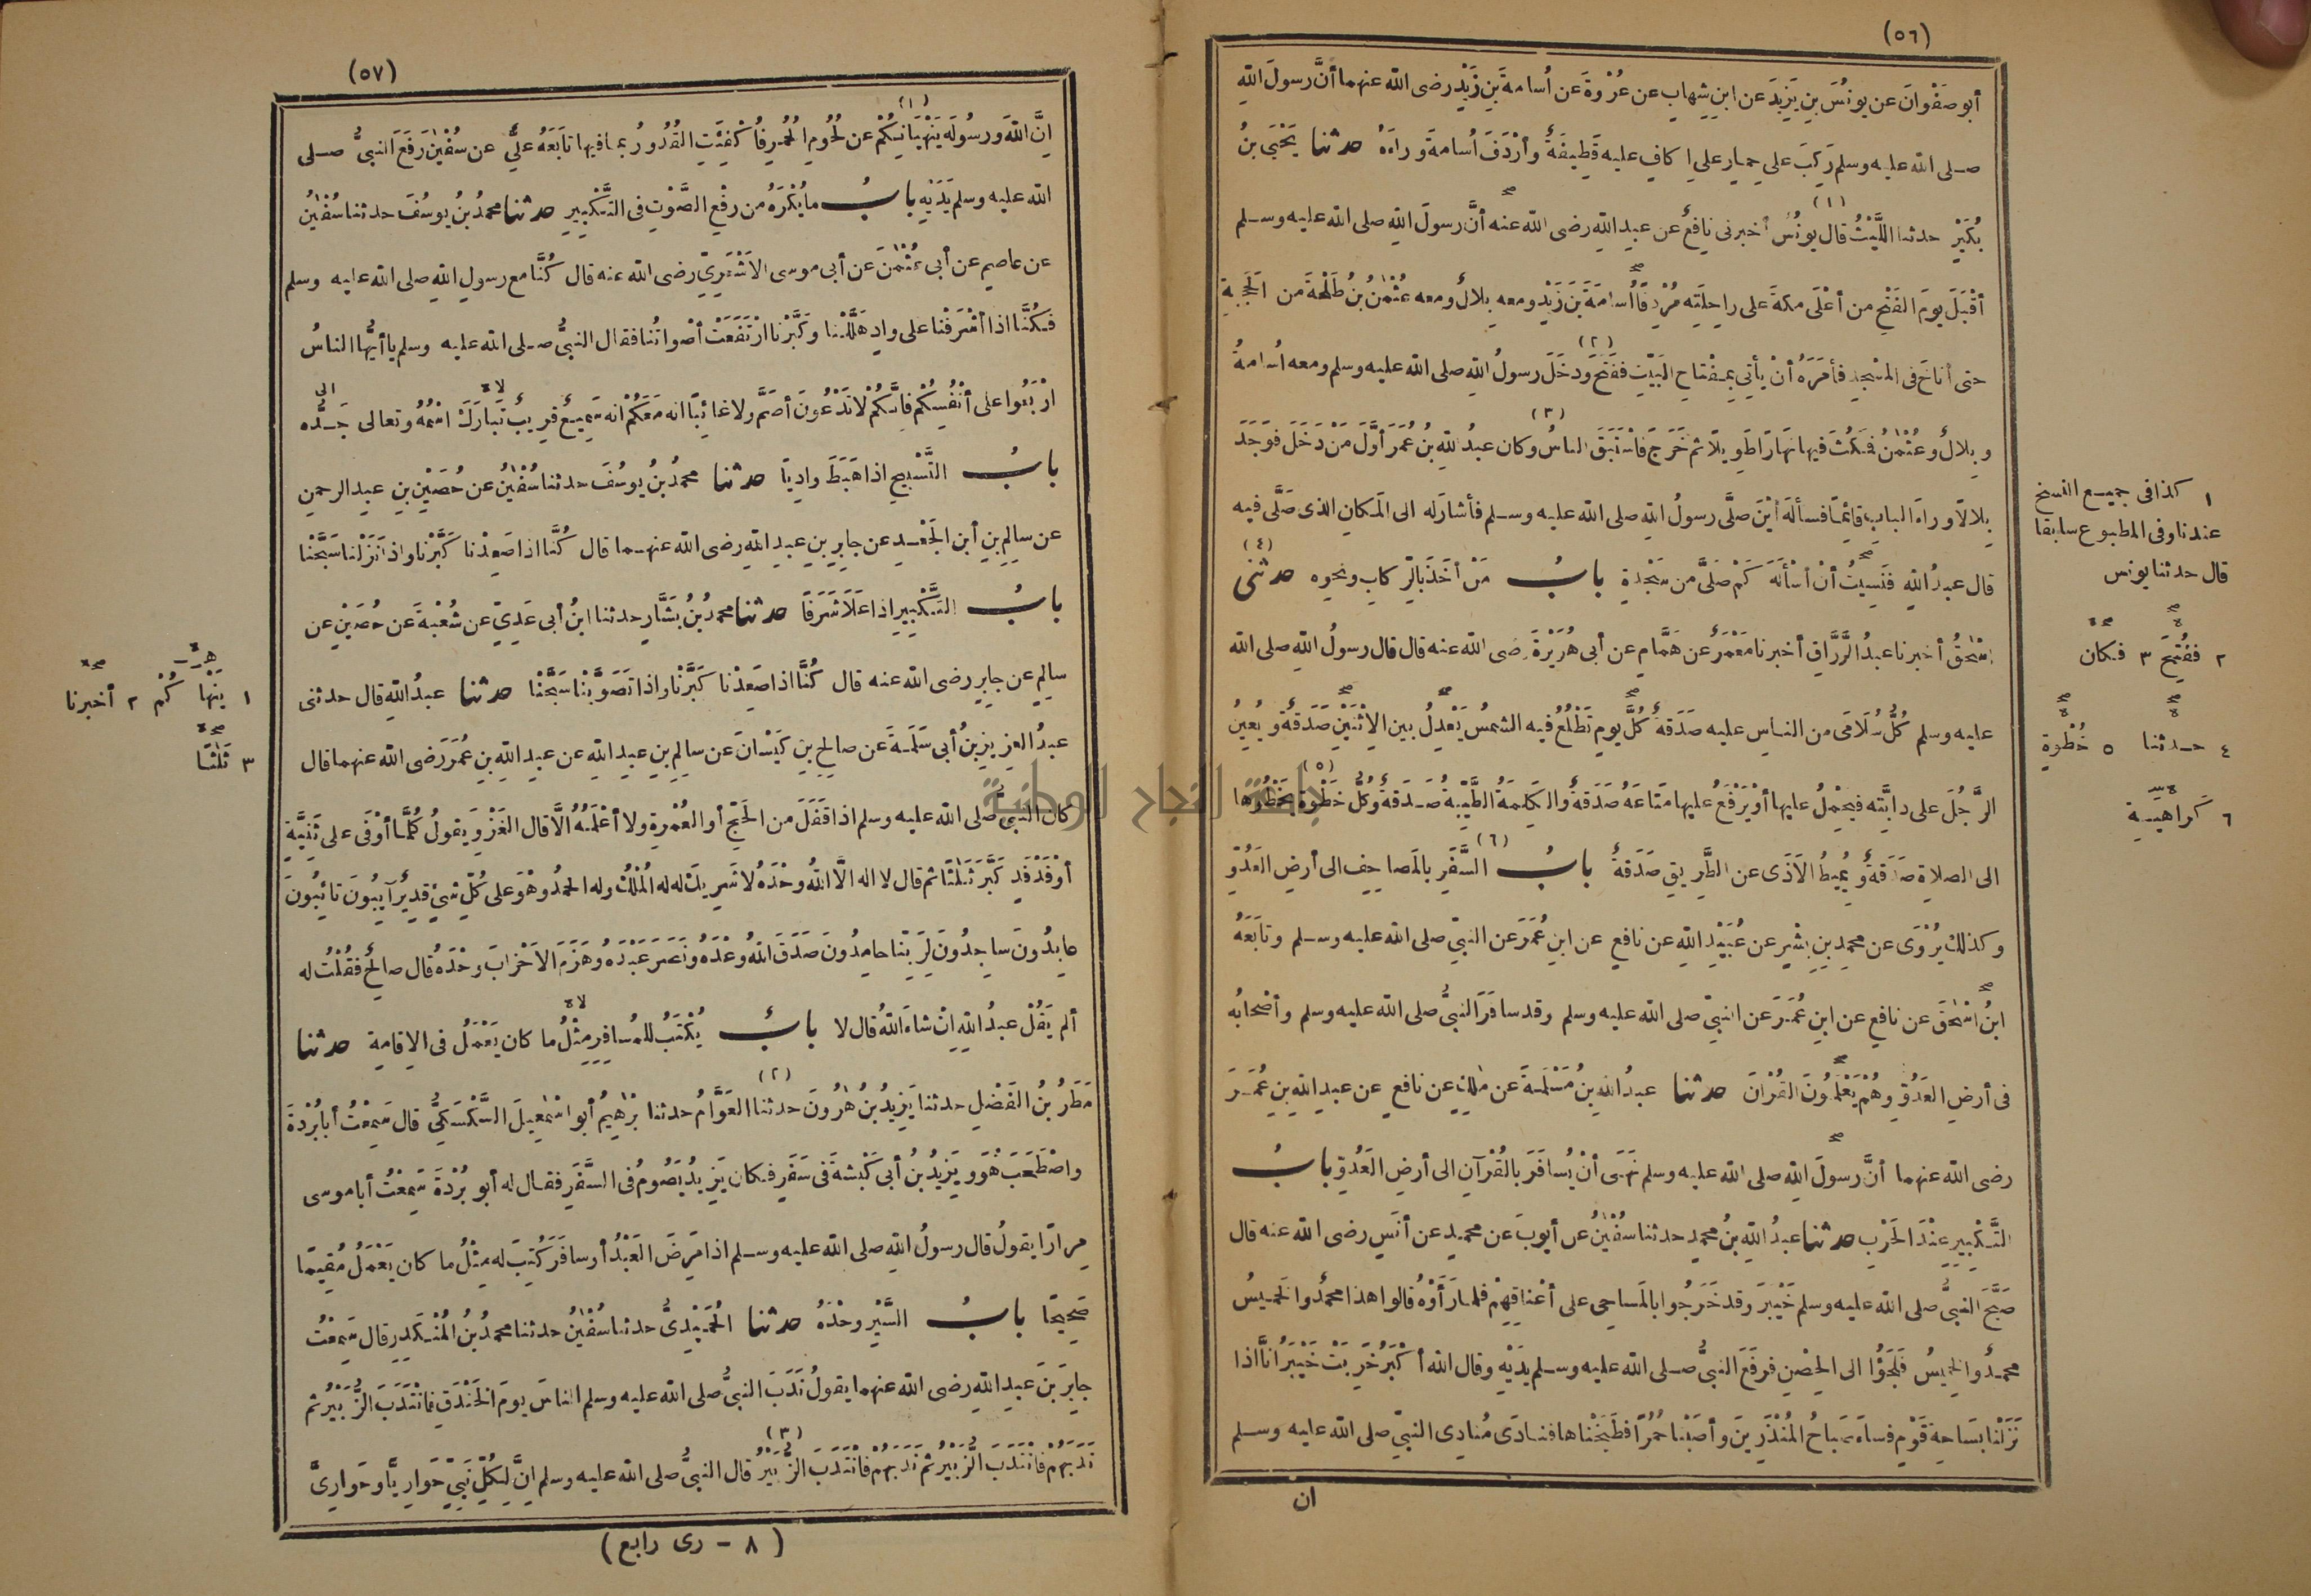 (٥٦)
أبو صَفْوانَ عن يونُسَ بنِ يَزِيدَ عن ابنِ شِهابٍ عن عُرْوةَ عن أُسامةَ بنِ زَيْدٍ رضى الله عنهما أنَّ رسولَ اللهِ
صلى الله عليه وسلم رَكِبَ على حِمارٍ على إكافٍ عليه قَطِيفَةٌ وأرْدَفَ أُسامةَ وراءَهُ حدثنا يَحْيَى بنُ
بُكَيْرٍ حدثنا اللَّيْثُ قال يونُسُ (١) أخبرنى نافعٌ عن عبدِ اللهِ رضى الله عنه أنَّ رسولَ اللهِ صلى الله عليه وسلم
أقْبَلَ يومَ الفَتْحِ من أعْلَى مكةَ على راحِلَتِه مُرْدِفًا أُسامَةَ بنَ زَيْدٍ ومعه بِلالٌ ومعه عُثْمٰنُ بنُ طَلْحَةَ من الحَجَبَةِ
حتى أناخَ فى المسْجِدِ فأمَرَهُ أنْ يأتىَ بمِفْتاحِ البَيْتِ فَفَتَحَ (٢) ودَخَلَ رسولُ اللهِ صلى الله عليه وسلم ومعه أُسامةُ
وبِلالٌ وعُثْمٰنُ فمَكُثَ فيها نَهارًا طَوِيلًا ثم خَرَجَ فاسْتَبَقَ الناسُ وكان (٣) عبدُ اللهِ بنُ عُمَرَ أوَّلَ مَنْ دَخَلَ فوَجَدَ
بِلالًا وراءَ البابِ قائِمًا فسألَهُ أيْنَ صلَّى رسولُ اللهِ صلى الله عليه وسلم فأشارَ له الى المَكانِ الذى صَلَّى فيه
قال عبدُ اللهِ فَنَسِيتُ أنْ أسْألَهُ كَمْ صَلَّى من سَجْدةٍ بابُ مَنْ أخَذَ بالرِّكابِ ونحوِه حدثنى (٤)
إسْحٰقُ أخبرنا عبدُ الرَّزَّاقِ أخبرنا مَعْمَرٌ عن هَمَّامٍ عن أبى هُرَيْرَةَ رضى الله عنه قال قال رسولُ اللهِ صلى الله
عليه وسلم كُلُّ سُلَامَى من الناسِ عليه صَدَقَةٌ كُلَّ يومٍ تَطْلُعُ فيه الشمسُ يَعْدِلُ بين الِاثْنَيْنِ صَدَقةٌ ويُعِينُ
الرَّجُلَ على دابَّتِه فيَحْمِلُ عليها أوْ يَرْفَعُ عليها مَتاعَهُ صَدَقةٌ والكَلِمَةُ الطَّيِّبَةُ صَدَقةٌ وكُلُّ خَطْوةٍ (٥) يَخْطُوها
الى الصلاةِ صَدَقةٌ ويُمِيطُ الأَذَى عن الطَّرِيقِ صَدَقةٌ بابُ السَّفَرِ (٦) بالمَصاحِفِ الى أرضِ العَدُوِّ
وكذلك يُرْوَى عن محمدِ بنِ بِشْرٍ عن عُبَيْدِ اللهِ عن نافعٍ عن ابنِ عُمَرَ عن النبىِّ صلى الله عليه وسلم وتابَعَهُ
ابنُ إسْحٰقَ عن نافعٍ عن ابنِ عُمَرَ عن النبىِّ صلى الله عليه وسلم وقد سافَرَ النبىُّ صلى الله عليه وسلم وأصْحابُه
فى أرضِ العَدُوِّ وهُمْ يَعْلَمُونَ القُرْانَ حدثنا عبدُ اللهِ بنُ مَسْلَمَةَ عن مٰلكٍ عن نافعٍ عن عبدِ اللهِ بنِ عُمَرَ
رضى الله عنهما أنَّ رسولَ اللهِ صلى الله عليه وسلم نَهَى أنْ يُسافَرَ بالقُرْآنِ الى أرضِ العَدُوِّ بابُ
التَّكْبِيرِ عِنْدَ الحَرْبِ حدثنا عبدُ اللهِ بنُ محمدٍ حدثنا سُفْيٰنُ عن أيوبَ عن محمدٍ عن أنَسٍ رضى الله عنه قال
صَبَّحَ النبىُّ صلى الله عليه وسلم خَيْبَرَ وقد خَرَجُوا بالمَساحِى على أعْناقِهِمْ فلما رَأَوْهُ قالوا هذا محمدٌ والخَمِيسُ
محمدٌ والخميسُ فَلَجَؤُا الى الحِصْنِ فرفَعَ النبىُّ صلى الله عليه وسلم يَدَيْهِ وقال الله أكْبَرُ خَرِبَتْ خَيْبَرُ إنَّا اذا
نَزَلْنا بساحةِ قَوْمٍ فساءَ صَباحُ المُنْذَرِينَ وأصَبْنا حُمُرًا فطَبَخْناها فنادَى مُنادِى النبىِّ صلى الله عليه وسلم
ان
١ كذا فى جميع النسخ
عندنا وفى المطبوع سابقا
قال حدثنا يونس
٢ فَفُتِحَ ٣ فكان
٤ حدثنا ٥ خُطْوةٍ
٦ كَراهيةِ
(٥٧)
إنَّ اللهَ ورسُولَه يَنْهَيَانِكُمْ (١) عن لُحُومِ الحُمُرِ فأُكْفِئَتِ القُدُورُ بما فيها تابَعَهُ علىٌّ عن سُفْيٰنَ رَفَعَ النبىُّ صلى
الله عليه وسلم يَدَيْهِ بابُ مايُكْرَهُ من رفْعِ الصَّوْتِ فى التَّكْبِيرِ حدثنا محمدُ بنُ يوسُفَ حدثنا سُفْيٰنُ
عن عاصمٍ عن أبى عُثْمٰنَ عن أبى موسى الأشْعَرِىِّ رضى الله عنه قال كُنَّا مع رسولِ اللهِ صلى الله عليه وسلم
فكُنَّا اذا أشْرَفْنا على وادٍ هَلَّلْنا وكَبَّرْنا ارْتَفَعَتْ أصْواتُنا فقال النبىُّ صلى الله عليه وسلم يا أيُّها الناسُ
ارْبَعُوا على أنْفُسِكُمْ فإنَّكُمْ لاتَدْعُونَ أصَمَّ ولا غائِبًا إنه مَعَكُمْ إنه سَمِيعٌ قرِيبٌ تَبارَكَ اسْمُهُ وتعالى جَدُّه
بابُ التَّسْبِيحِ اذا هَبَطَ وادِيًا حدثنا محمدُ بنُ يوسُفَ حدثنا سُفْيٰنُ عن حُصَيْنِ بنِ عبدِ الرحمنِ
عن سالمِ بنِ أبى الجَعْدِ عن جابِرِ بنِ عبدِ اللهِ رضى الله عنهما قال كُنَّا اذا صَعِدْنا كَبَّرْنا واذا نَزَلْنا سَبَّحْنا
بابُ التَّكْبِيرِ اذا عَلَا شَرَفًا حدثنا محمدُ بنُ بَشَّارٍ حدثنا ابنُ أبى عَدِىٍّ عن شُعْبةَ عن حُصَيْنٍ عن
سالمٍ عن جابِرٍ رضى الله عنه قال كُنَّا اذا صَعِدْنا كَبَّرْنا واذا تَصَوَّبْنا سَبَّحْنا حدثنا عبدُ اللهِ قال حدثنى
عبدُ العزِيزِ بنُ أبى سَلَمةَ عن صالِحِ بنِ كَيْسانَ عن سالمِ بنِ عبدِ اللهِ عن عبدِ اللهِ بنِ عُمَرَ رَضى الله عنهما قال
كان النبىُّ صلى الله عليه وسلم اذا قَفَلَ من الحَجِّ أو العُمْرةِ ولا أعْلَمُهُ إلَّا قال الغَزْوِ يقولُ كُلَّما أوْفَى على ثَنِيَّةٍ
أوْ فَدْفَدٍ كَبَّرَ ثَلٰثًا ثم قال لا اله الَّا اللهُ وحْدَهُ لا شَرِيكَ له له المُلْكُ وله الحمدُ وهْوَ على كُلِّ شئٍ قدِيرٌ آيِبُونَ تائِبُونَ
عابِدُونَ ساجِدُونَ لِرَبِّنا حامِدُونَ صَدَقَ اللهُ وعْدَهُ ونَصَرَ عَبْدَهُ وهَزَمَ الأحْزابَ وحْدَهُ قال صالِحٌ فقُلْتُ له
ألم يَقُلْ عبدُ اللهِ إنْ شاءَ اللهُ قال لا بابٌ يُكْتَبُ للمُسافِرِ مِثْلُ ما كان يَعْمَلُ فى الاقامةِ حدثنا
مَطَرُ بنُ الفَضْلِ حدثنا يَزِيدُ بنُ هٰرُونَ حدثنا (٢) العَوَّامُ حدثنا إبْرٰهِيمُ أبو اسْمٰعِيلَ السَّكْسَكِىُّ قال سَمِعْتُ أبا بُرْدةَ
واصْطَحَبَ هُوَ ويَزِيدُ بنُ أبى كَبْشةَ فى سَفَرٍ فكان يَزِيدُ يَصُومُ فى السَّفَرِ فقال له أبو بُرْدةَ سَمِعْتُ أبا موسى
مِرارًا يقولُ قال رسولُ اللهِ صلى الله عليه وسلم اذا مَرِضَ العَبْدُ أو سافَرَ كُتِبَ له مِثْلُ ما كان يَعْمَلُ مُقِيمًا
صَحِيحًا بابُ السَّيْرِ وحْدَهُ حدثنا الحُمَيْدِىُّ حدثنا سُفْيٰنُ حدثنا محمدُ بنُ المُنْكَدِرِ قال سَمِعْتُ
جابِرَ بنَ عبدِ اللهِ رضى الله عنهما يقولُ نَدَبَ النبىُّ صلى الله عليه وسلم الناسَ يومَ الخَنْدَقِ فانْتَدَبَ الزُّبَيْرُ ثم
نَدَبَهُمْ فانْتَدَبَ الزُّبَيْرُ ثم نَدَبَهُمْ فانْتَدَبَ الزُّبَيْرُ (٣) قال النبىُّ صلى الله عليه وسلم إنَّ لِكُلِّ نَبِىٍّ حَوارِيًّا وحَوارِىَّ
(٨ - رى رابع)
١ يَنْهَاكُمْ ٢ أخبرنا
٣ ثَلٰثًا
جامعة النجاح الوطنية